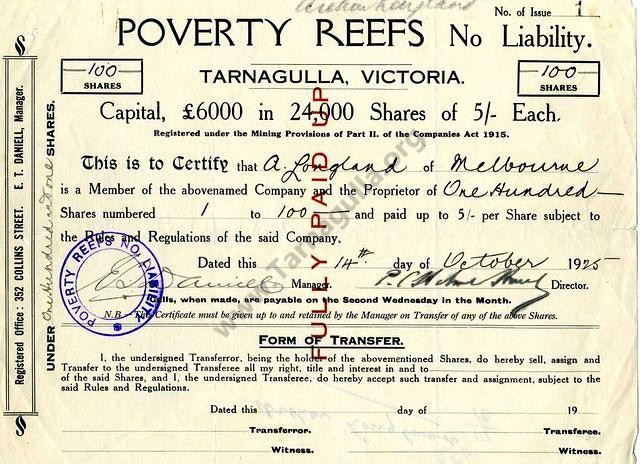 No. of Issue 1
POVERTY REEFS No Liability.
100 SHARES
TARNAGULLA, VICTORIA.
100 SHARES
Capital, £6000 in 24,000 Shares of 5/- Each.
Registered under the Mining Provisions of Part II. of the Companies Act 1915.
This is to Certify that A. Longland of Melbourne
is a Member of the abovenamed Company and the Proprietor of One Hundred
Shares numbered 1 to 100 and paid up to 5/- per Share subject to
the Rules and Regulations of the said Company.
Dated this 14th day of October 1925
E. T. Daniell Manager. Director.
Calls, when made, are payable on the Second Wednesday in the Month.
N.B.—This Certificate must be given up to and retained by the Manager on Transfer of any of the above Shares.
FORM OF TRANSFER.
I, the undersigned Transferor, being the holder of the abovementioned Shares, do hereby sell, assign and
Transfer to the undersigned Transferee all my right, title and interest in and to
of the said Shares, and I, the undersigned Transferee, do hereby accept such transfer and assignment, subject to the
said Rules and Regulations.
Dated this day of 19
Transferror. Transferee.
Witness. Witness.
Registered Office: 352 COLLINS STREET. E. T. DANIELL, Manager.
UNDER One Hundred and one SHARES.
FULLY PAID UP
POVERTY REEFS NO LIABILITY
www.Tarnagulla.org